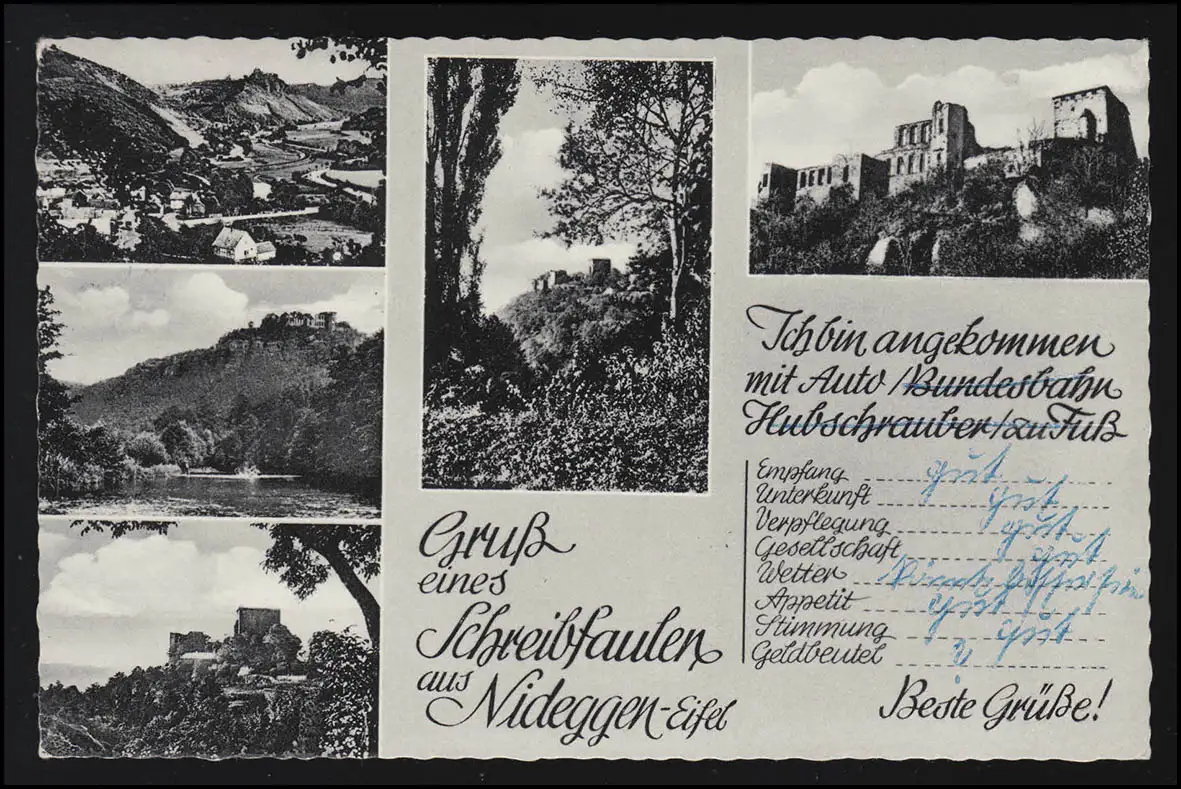 Gruß
eines
Schreibfaulen
aus
Nideggen-Eifel
Ich bin angekommen
mit Auto / Bundesbahn
Hubschrauber / zu Fuß
Empfang gut
Unterkunft gut
Verpflegung gut
Gesellschaft gut
Wetter könnte besser sein
Appetit gut
Stimmung gut
Geldbeutel ?
Beste Grüße!